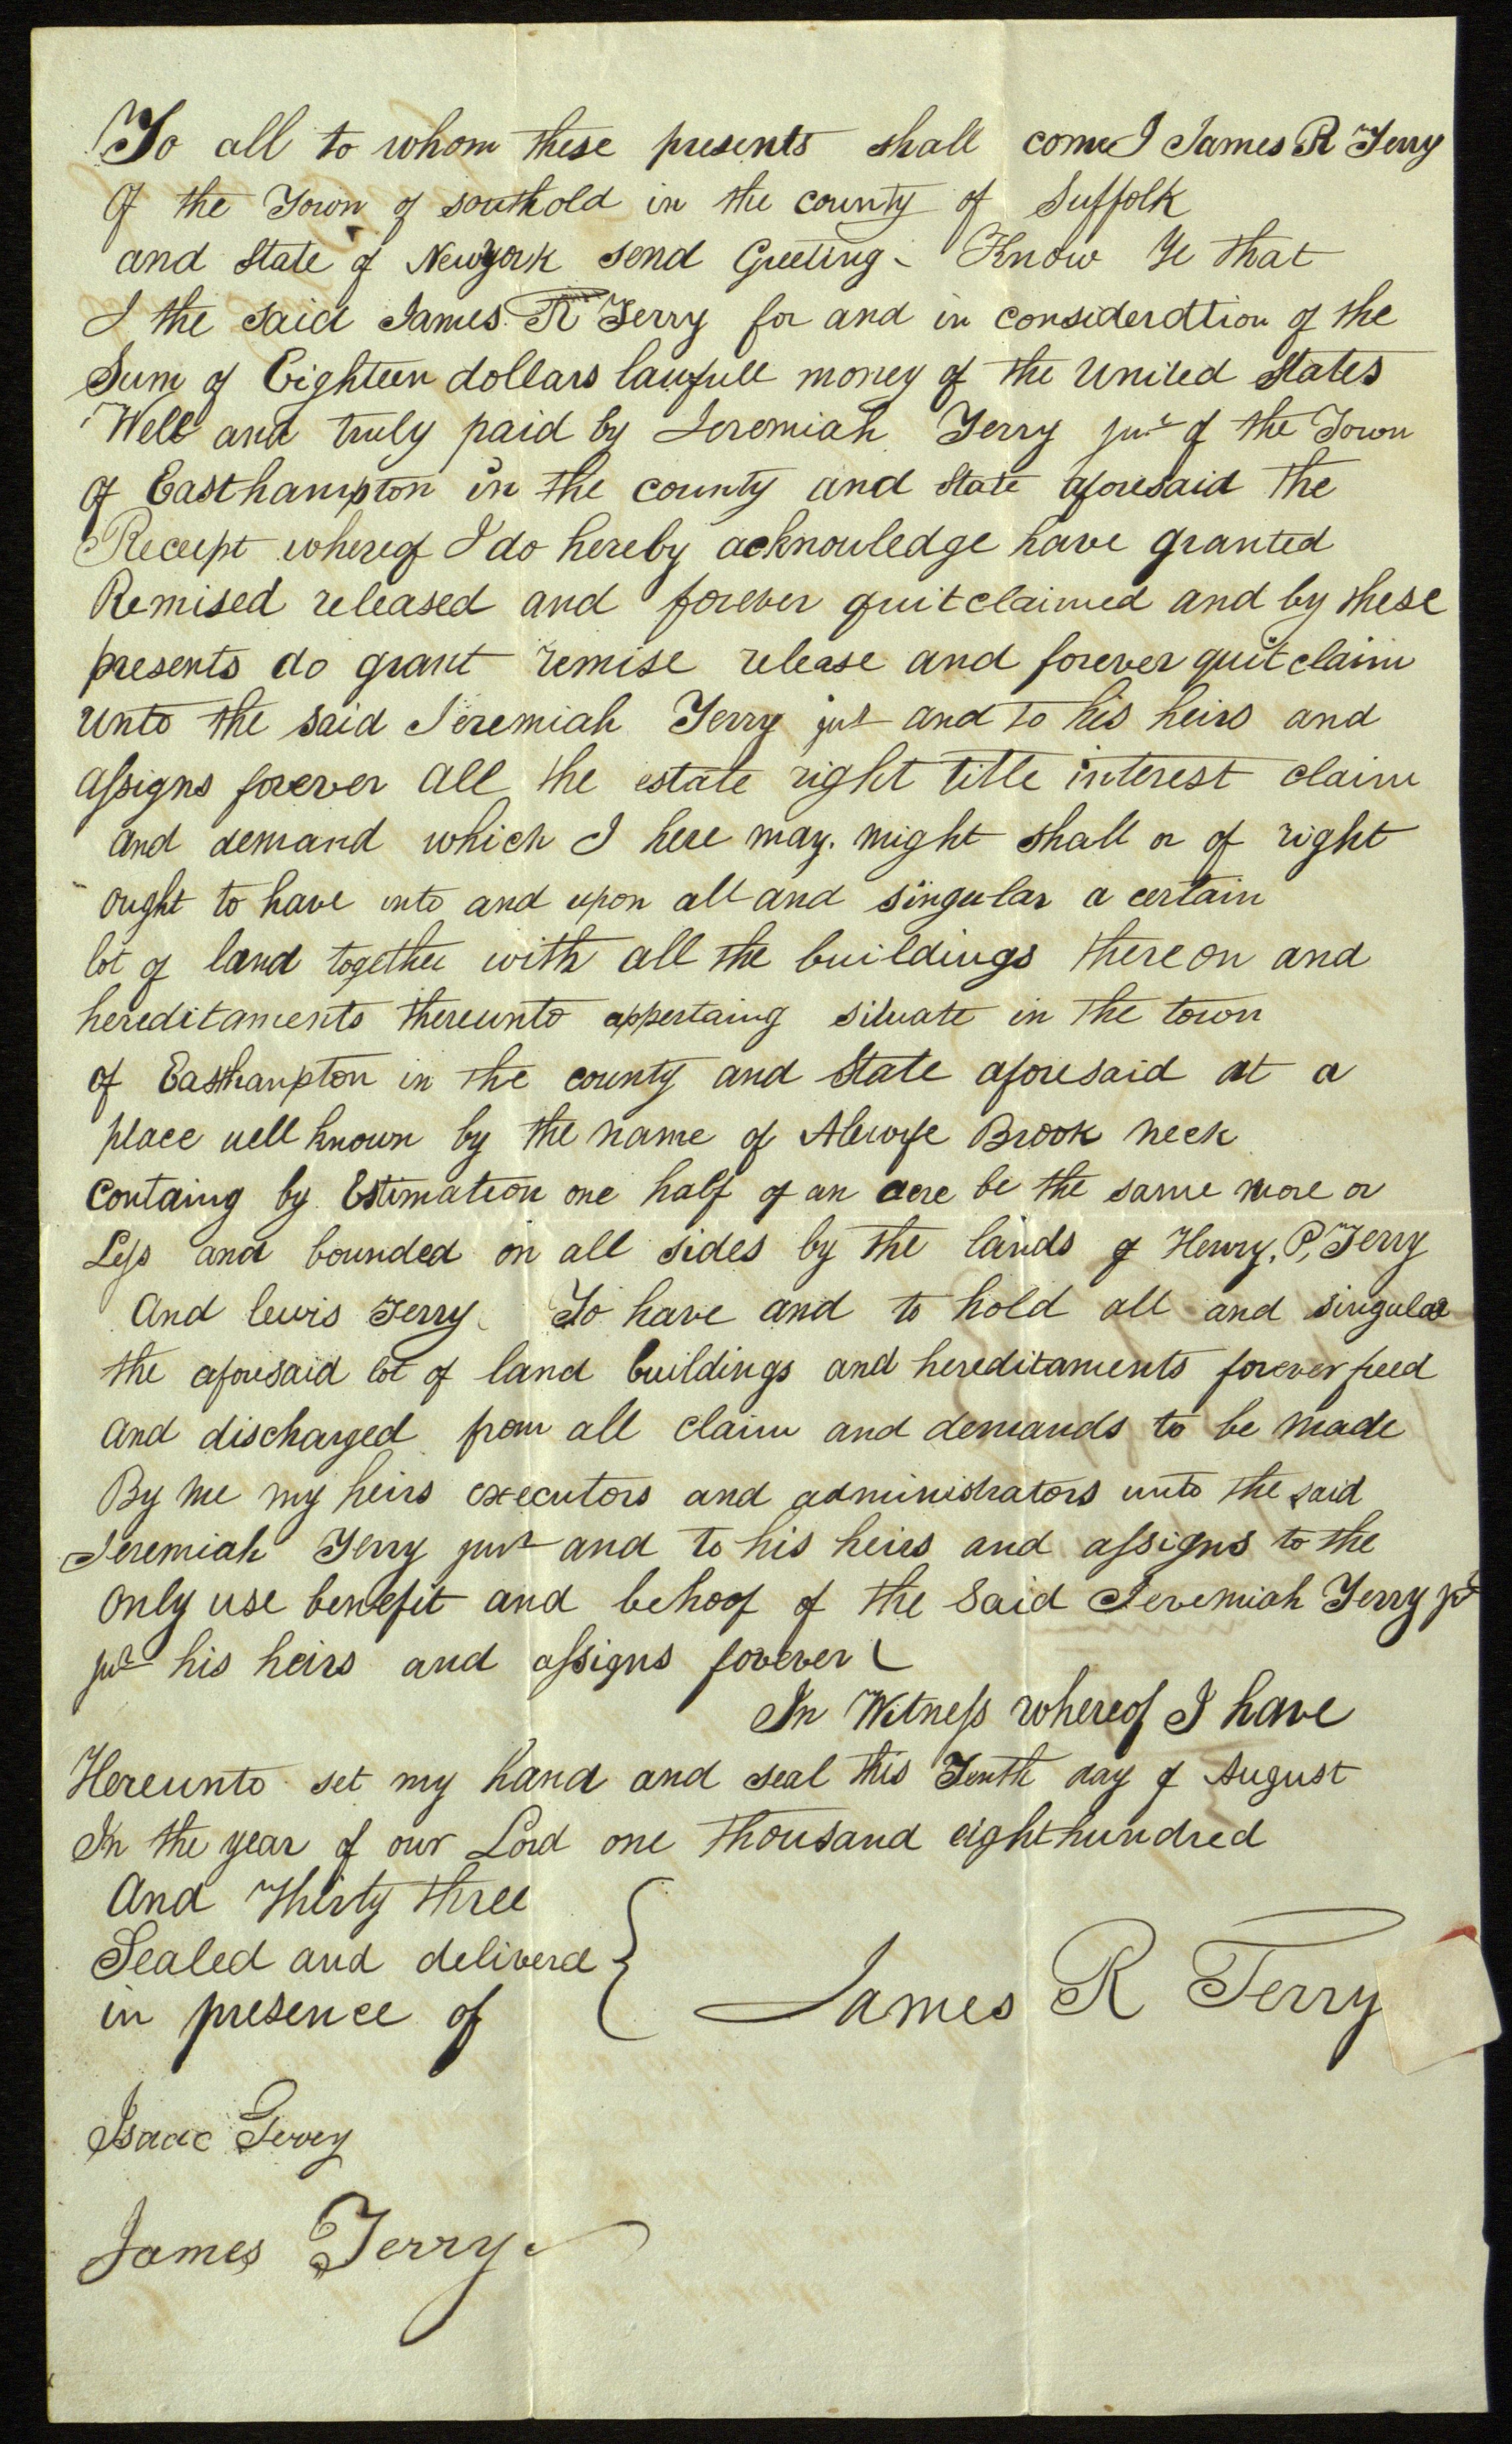 To all to whom these presents shall come I James R Terry
Of the Town of southold in the county of Suffolk
and State of Newyork send Greeting. Know Ye that
I the said James R Terry for and in consideration of the
Sum of Eighteen dollars lawfull money of the United States
Well and truly paid by Jeremiah Terry junr of the Town
of Easthampton in the county and State aforesaid the
Receipt whereof I do hereby acknowledge have granted
Remised released and forever quitclaimed and by these
presents do grant remise release and forever quit claim
unto the said Jeremiah Terry jur and to his heirs and
assigns forever all the estate right title interest claim
and demand which I here may. might shall or of right
ought to have into and upon all and singular a certain
lot of land together with all the buildings thereon and
hereditaments thereunto appertaing situate in the town
of Easthampton in the county and State aforesaid at a
place well known by the name of Alewife Brook neck
Containg by Estimation one half of an acre be the same more or
Less and bounded on all sides by the lands of Henry, P, Terry
And lewis Terry. To have and to hold all and singular
the aforesaid lot of land buildings and hereditaments forever freed
and discharged from all claim and demands to be made
By me my heirs executors and administrators unto the said
Jeremiah Terry junr and to his heirs and assigns to the
only use benefit and behoof of the said Jeremiah Terry jr
jur his heirs and assigns forever
In Witness whereof I have
Hereunto set my hand and seal this Tenth day of August
In the year of our Lord one thousand eighthundred
And Thirty three
Sealed and deliverd
in presence of
James R Terry
Isaac Terry
James Terry